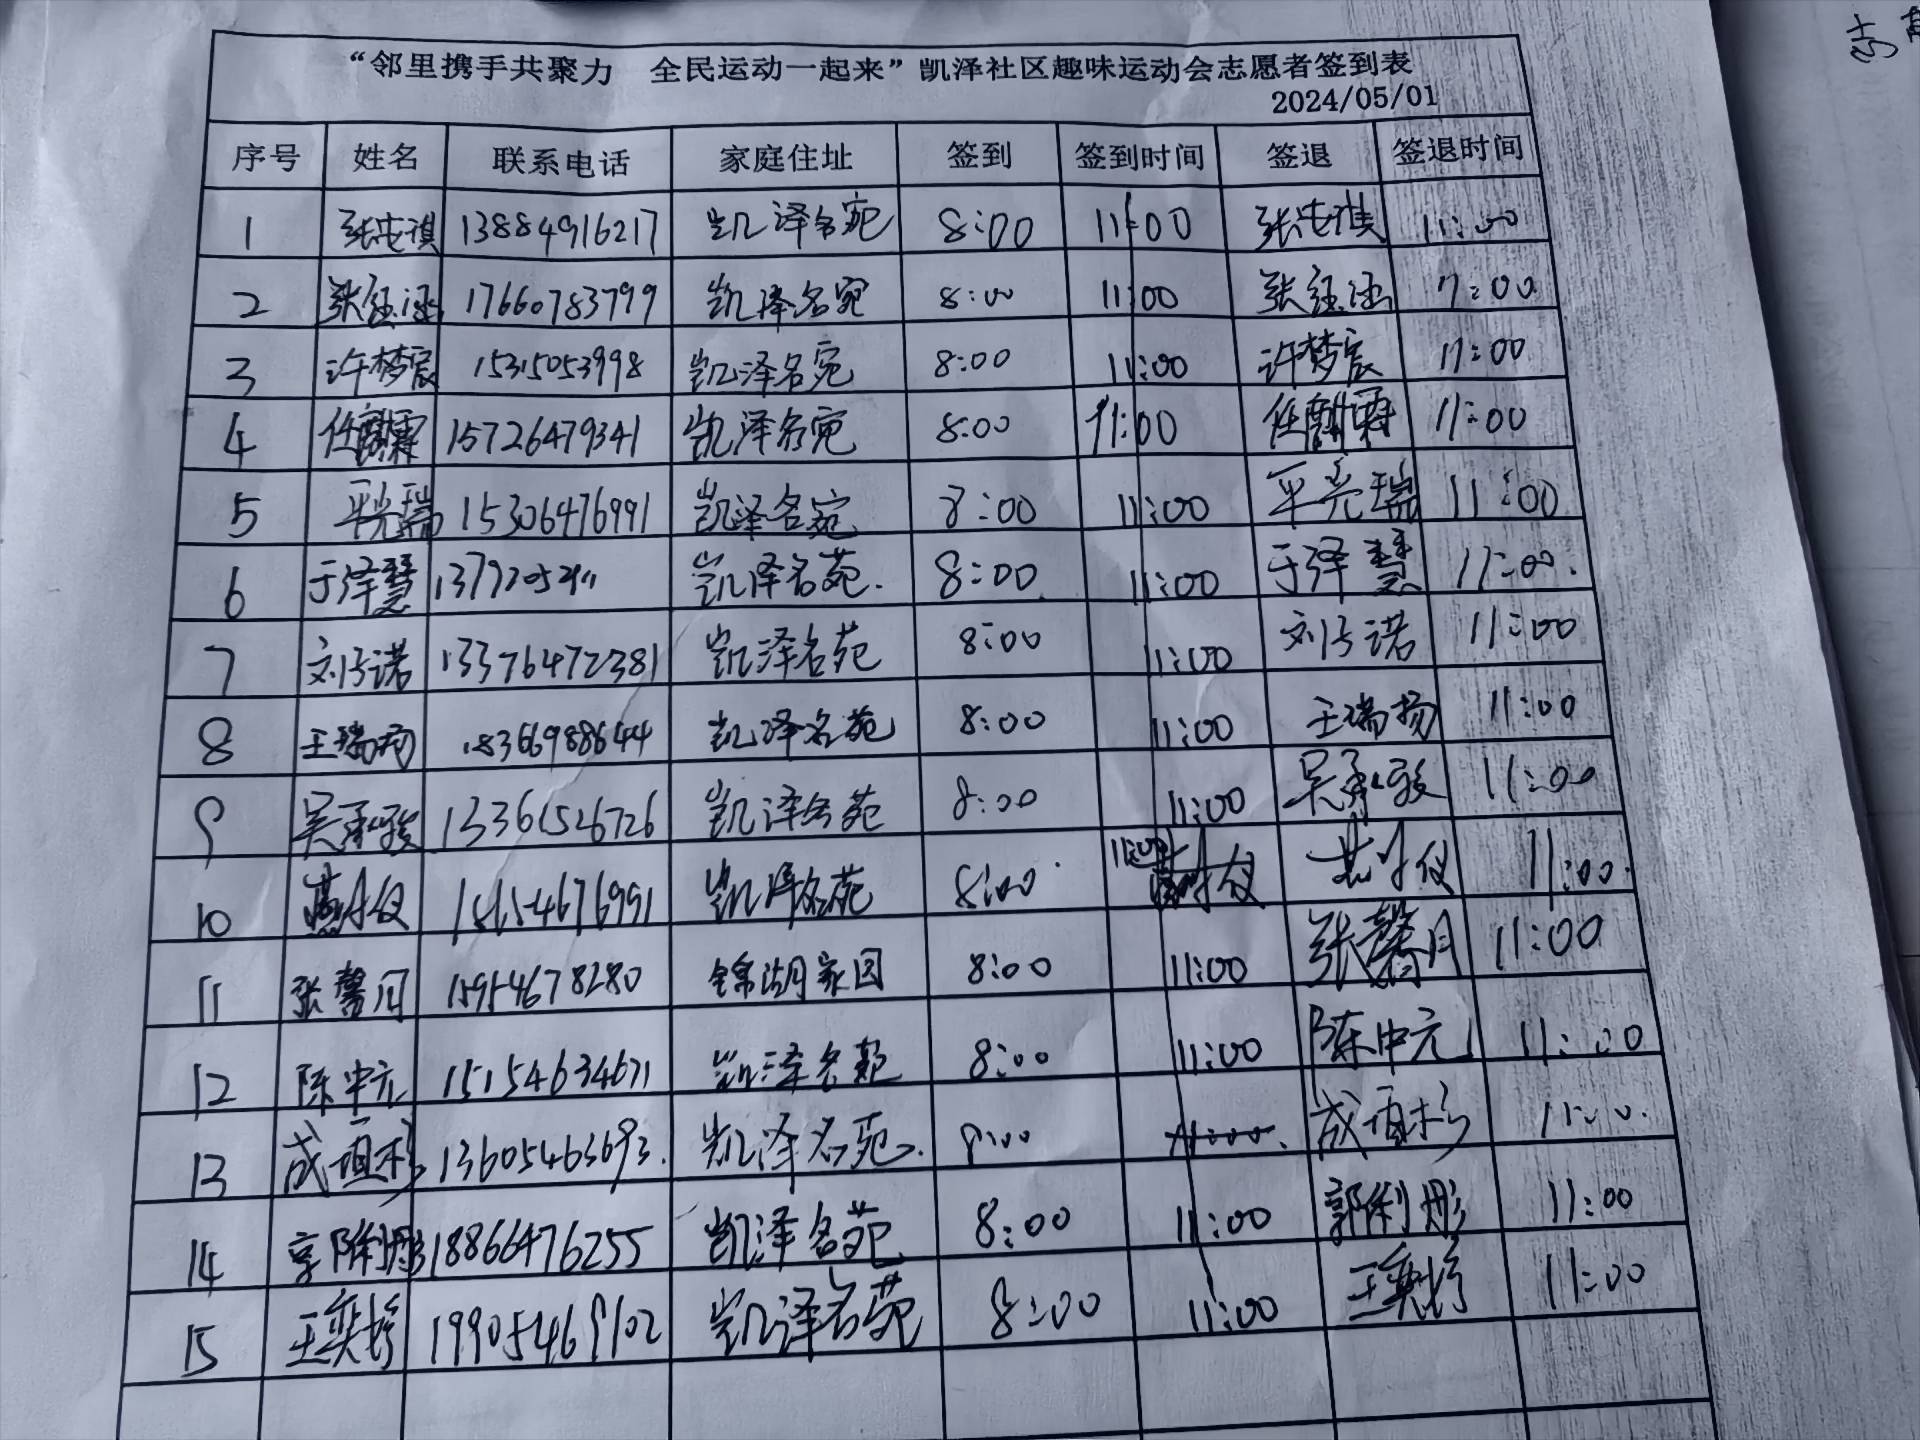 “邻里携手共聚力 全民运动一起来”凯泽社区趣味运动会志愿者签到表
2024/05/01
序号 姓名 联系电话 家庭住址 签到 签到时间 签退 签退时间
1 13884916217 凯泽名宛 8:00 11:00 11:00
2 张钰涵 17660783799 凯泽名宛 8:00 11:00 张钰涵 11:00
3 许梦宸 15315053998 凯泽名宛 8:00 11:00 许梦宸 11:00
4 15726479341 凯泽名宛 8:00 11:00 11:00
5 平亮瑞 15306476991 凯泽名宛 8:00 11:00 平亮瑞 11:00
6 于泽慧 凯泽名苑. 8:00 11:00 于泽慧 11:00.
7 13376472381 凯泽名苑 8:00 11:00 11:00
8 王瑞扬 18366988644 凯泽名苑 8:00 11:00 王瑞扬 11:00
9 吴承骏 13361526726 凯泽名苑 8:00 11:00 吴承骏 11:00
10 凯泽名苑 8:00 11:00 11:00.
11 张馨月 15954678280 锦湖家园 8:00 11:00 张馨月 11:00
12 陈中元 15154634671 凯泽名苑 8:00 11:00 陈中元 11:00
13 13605463693. 凯泽名苑. 8:00 11:00. 11:00.
14 18866476255 凯泽名苑 8:00 11:00 11:00
15 王奕婷 19905469102 凯泽名苑 8:00 11:00 王奕婷 11:00